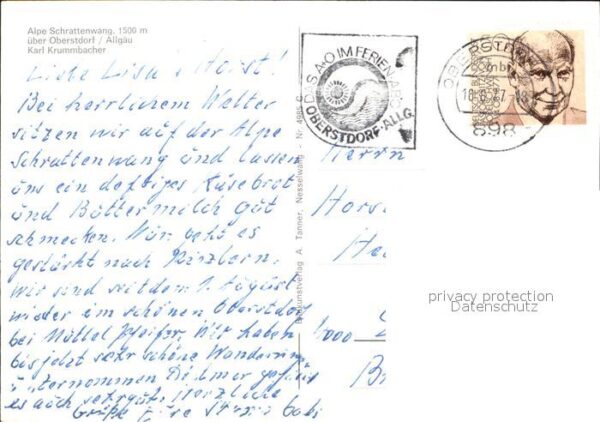 Alpe Schrattenwang, 1500 m
über Oberstdorf / Allgäu
Karl Krummbacher
Liebe Lisa u. Horst!
Bei herrlichem Wetter
sitzen wir auf der Alpe
Schrattenwang und lassen
uns ein deftiges Käsebrot
und Buttermilch gut
schmecken. Nun geht es
gestärkt nach Kanzlern.
Wir sind seit dem 1. August
wieder im schönen Oberstdorf
bei Pfeifer. Wir haben
bis jetzt sehr schöne Wanderungen
unternommen
es auch sehr gut. Herzliche
Grüße
DAS A-O IM FERIEN-ABC
OBERSTDORF-ALLG.
OBERSTDORF
898
Kunstverlag A. Tanner, Nesselwang - Nr. 498
Herrn
Hors
He
4000
B
privacy protection
Datenschutz